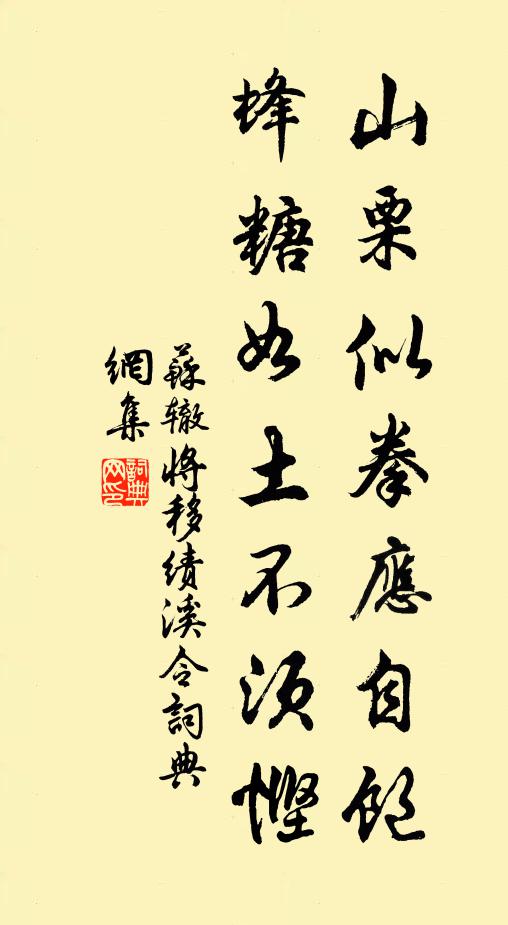 山栗似拳應自飽
蜂糖如土不須慳
蘇轍將移績溪令詞典
網集
詞典網印